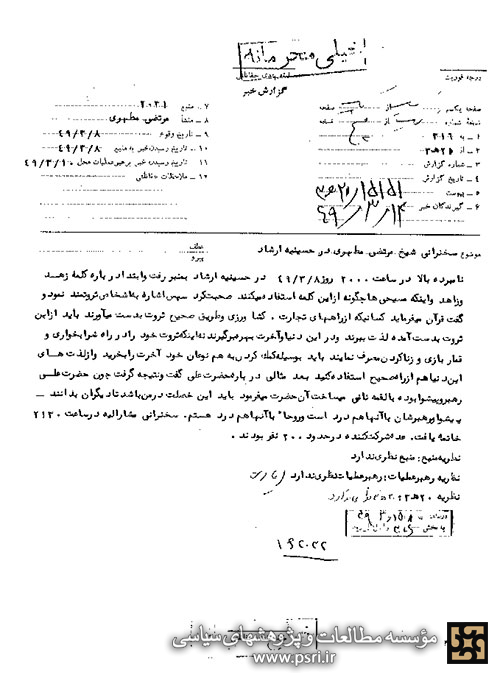 خیلی محرمانه
درجه فوریت
طبقه بندی حفاظتی
گزارش خبر
صفحه یکم از صفحه
نسخه شماره از نسخه
۱ ـ به ۳۱۶
۲ ـ از ۲۰ه۳
۳ ـ شماره گزارش
۴ ـ تاریخ گزارش
۵ ـ پیوست
۶ ـ گیرندگان خبر
۷ ـ منبع ۲۰۳۱
۸ ـ منشأ مرتضی مطهری
۹ ـ تاریخ وقوع ۴۹/۳/۸
۱۰ ـ تاریخ رسیدن خبر به منبع ۴۹/۳/۸
۱۱ ـ تاریخ رسیدن خبر به رهبر عملیات محل ۴۹/۳/۱۰
۱۲ ـ ملاحظات حفاظتی
۴۹/۳/۱۴
موضوع سخنرانی شیخ مرتضی مطهری در حسینیه ارشاد
عطف
پیرو
نامبرده بالا در ساعت ۲۰۰۰ روز ۴۹/۳/۸ در حسینیه ارشاد بمنبر رفت و ابتدا درباره کلمه زهد
و زاهد و اینکه مسیحی‌ها چگونه از این کلمه استفاده میکنند صحبت کرد سپس اشاره به اشخاص ثروتمند نمود و
گفت قرآن میفرماید کسانیکه از راههای تجارت ، کشاورزی و طریق صحیح ثروت بدست میآورند باید از این
ثروت بدست آمده لذت ببرند و در این دنیا و آخرت بهره برگیرند نه اینکه ثروت خود را در راه شرابخواری و
قمار بازی و زنا کردن مصرف نمایند باید بوسیله کمک کردن به هم نوعان خود آخرت را بخرید و از لذت های
این دنیا هم از راه صحیح استفاده کنید بعد مثالی درباره حضرت علی گفت و نتیجه گرفت چون حضرت علی
رهبر و پیشوا بوده با لقمه نانی میساخت آن حضرت میفرمود باید این خصلت در من باشد تا دیگران بدانند ـ
پیشوا و رهبرشان با آنها هم درد است و روحا" با آنها هم درد هستم. سخنرانی مشارالیه در ساعت ۲۱۳۰
خاتمه یافت. عده شرکت کننده در حدود ۲۰۰ نفر بودند.
نظریه منبع : منبع نظری ندارد
نظریه رهبر عملیات : رهبر عملیات نظری ندارد
نظریه ۲۰ه۳
۱۹۲۰۲۲
مؤسسه مطالعات و پژوهشهای سیاسی
www.psri.ir